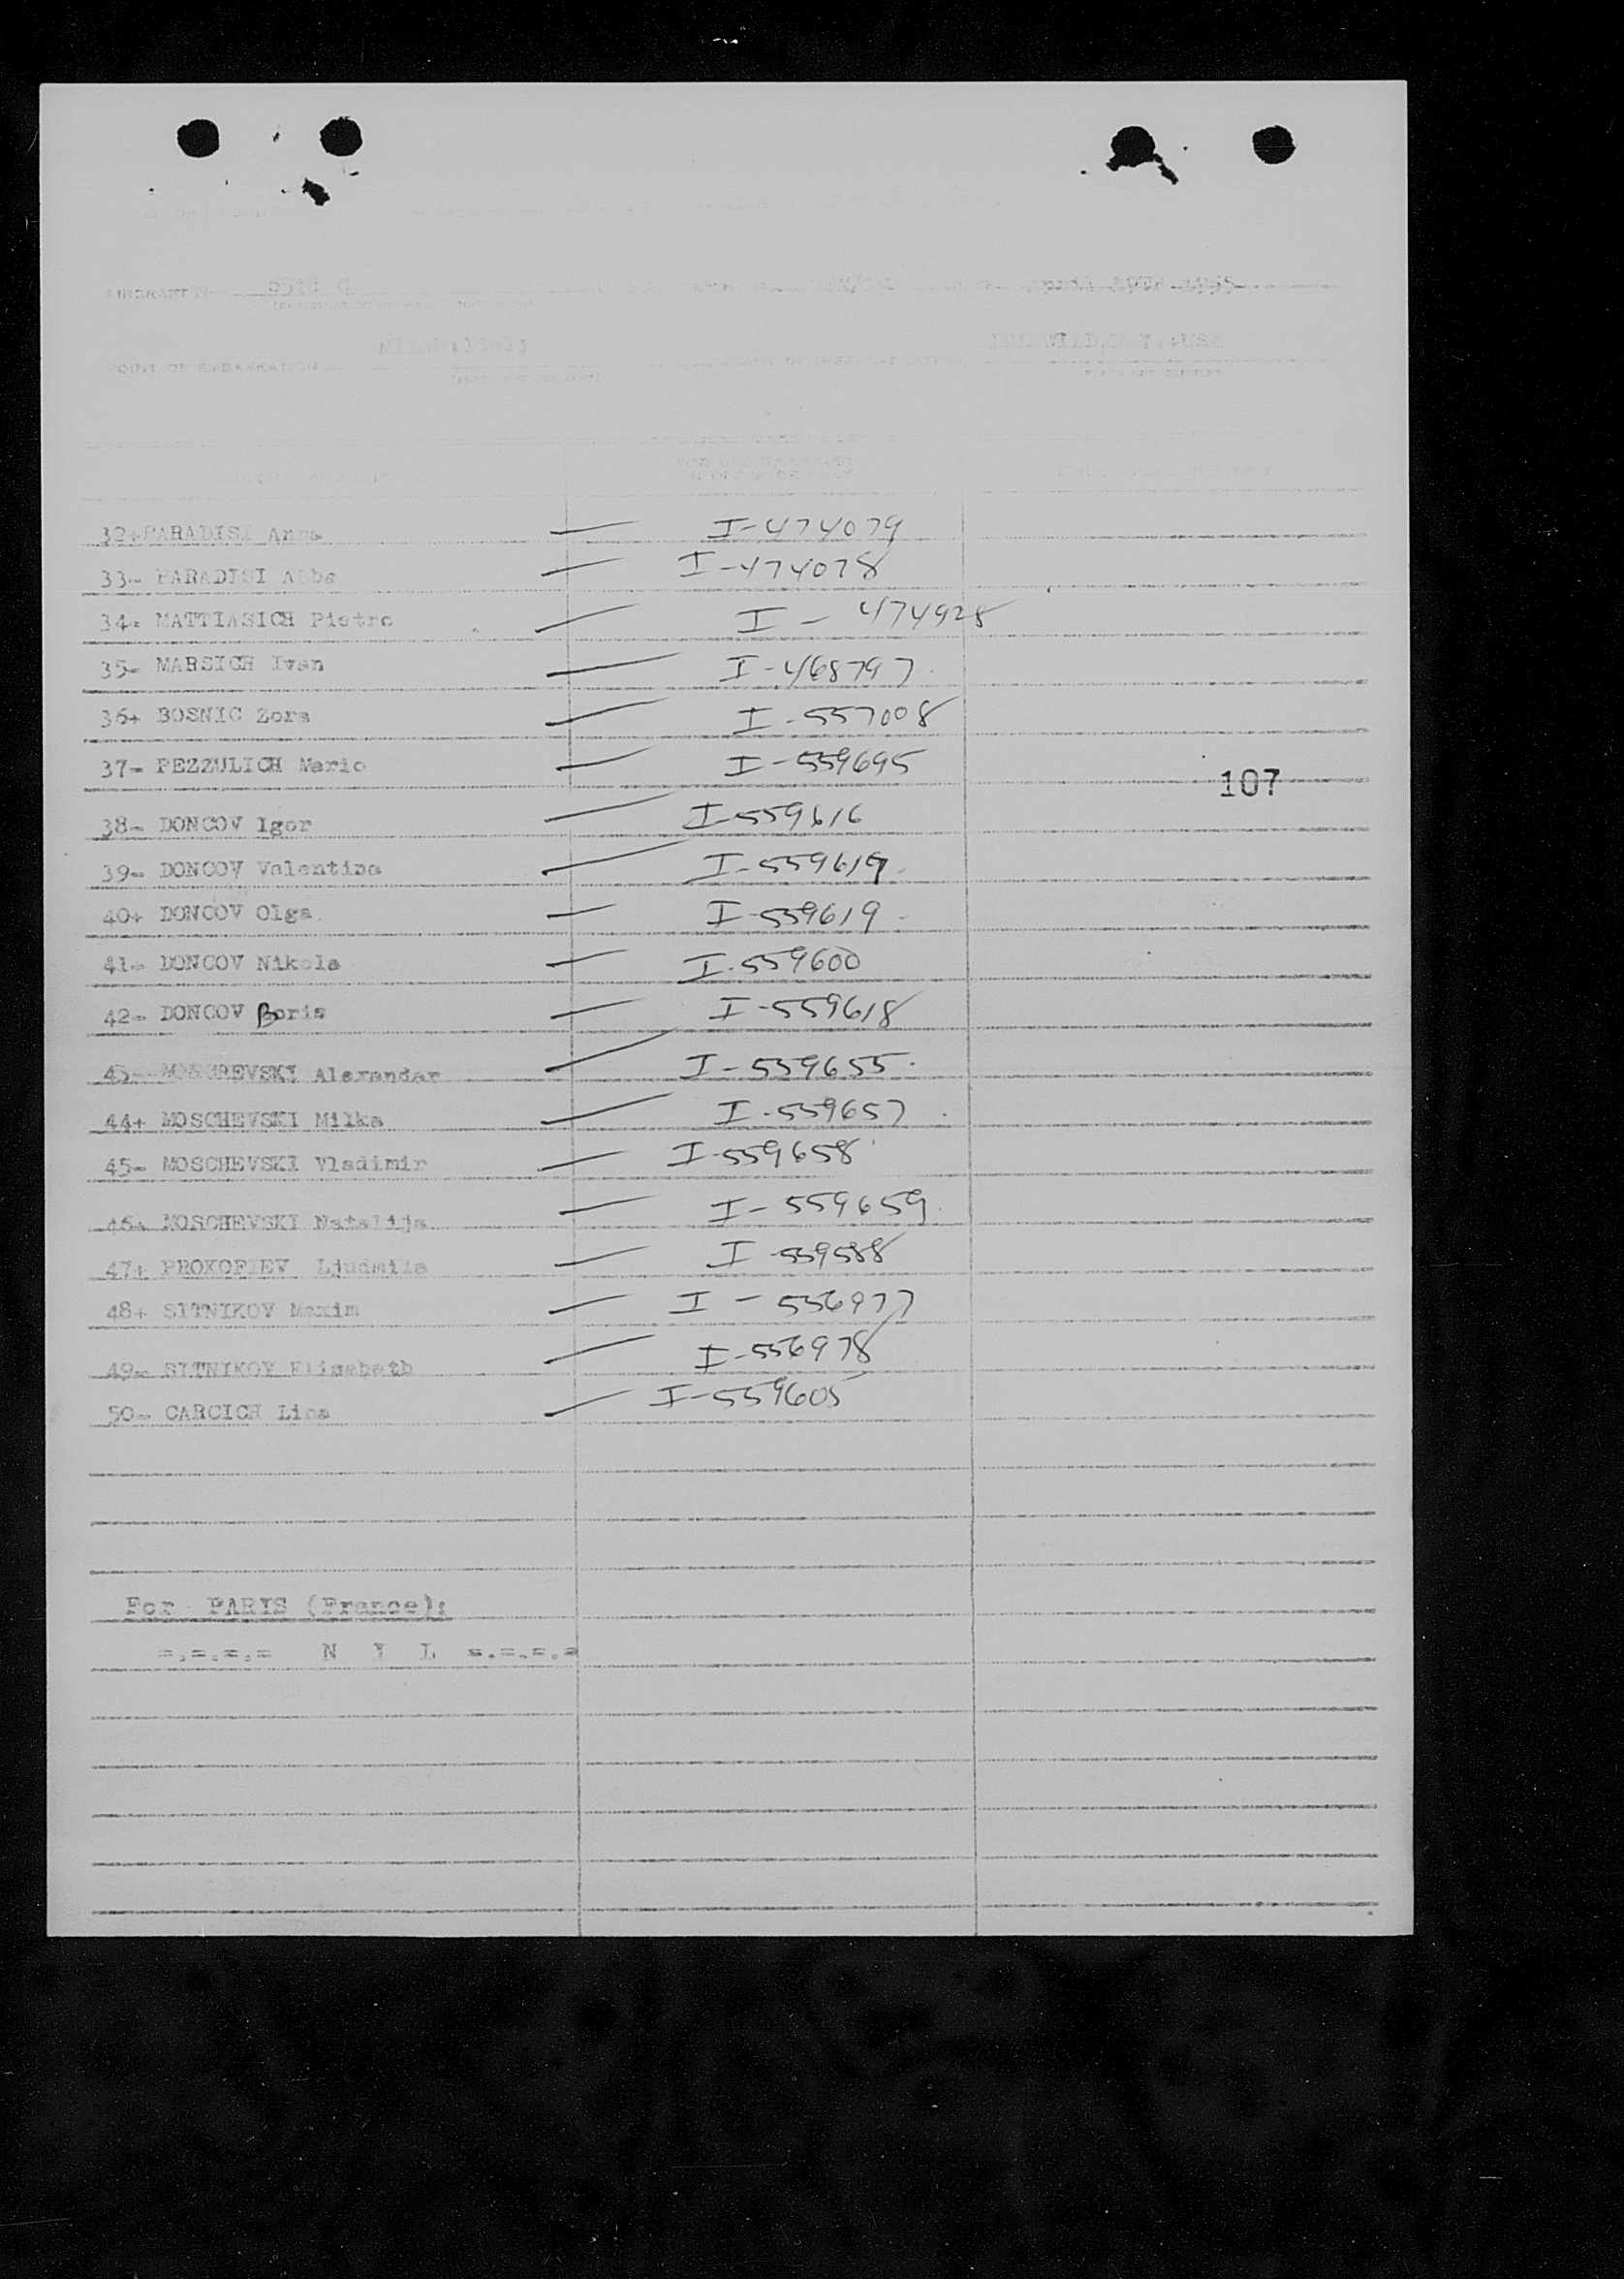 POINT OF EMBARKATION
32+ PARADISI Anna — I-474079
33- PARADISI — I-474078
34- MATTIASICH Pietro — I - 474928
35- MARSICH Ivan — I-468797
36+ BOSNIC Zora — I-557008
37- PEZZULICH Mario — I-559695
107
38- DONCOV Igor — I-559616
39- DONCOV Valentina — I-559619
40+ DONCOV Olga — I-559619
41- DONCOV Nikola — I-559600
42- DONCOV Boris — I-559618
43- MOSCHEVSKI Alexandar — I-559655
44+ MOSCHEVSKI Milka — I-559657
45- MOSCHEVSKI Vladimir — I-559658
46+ MOSCHEVSKI Natalija — I-559659
47+ PROKOFIEV Ljudmila — I-559588
48+ SITNIKOV Maxim — I-556977
49- SITNIKOV Elisabeth — I-556978
50- CARCICH Lina — I-559605
For PARIS (France):
=.=.=.= N I L =.=.=.=